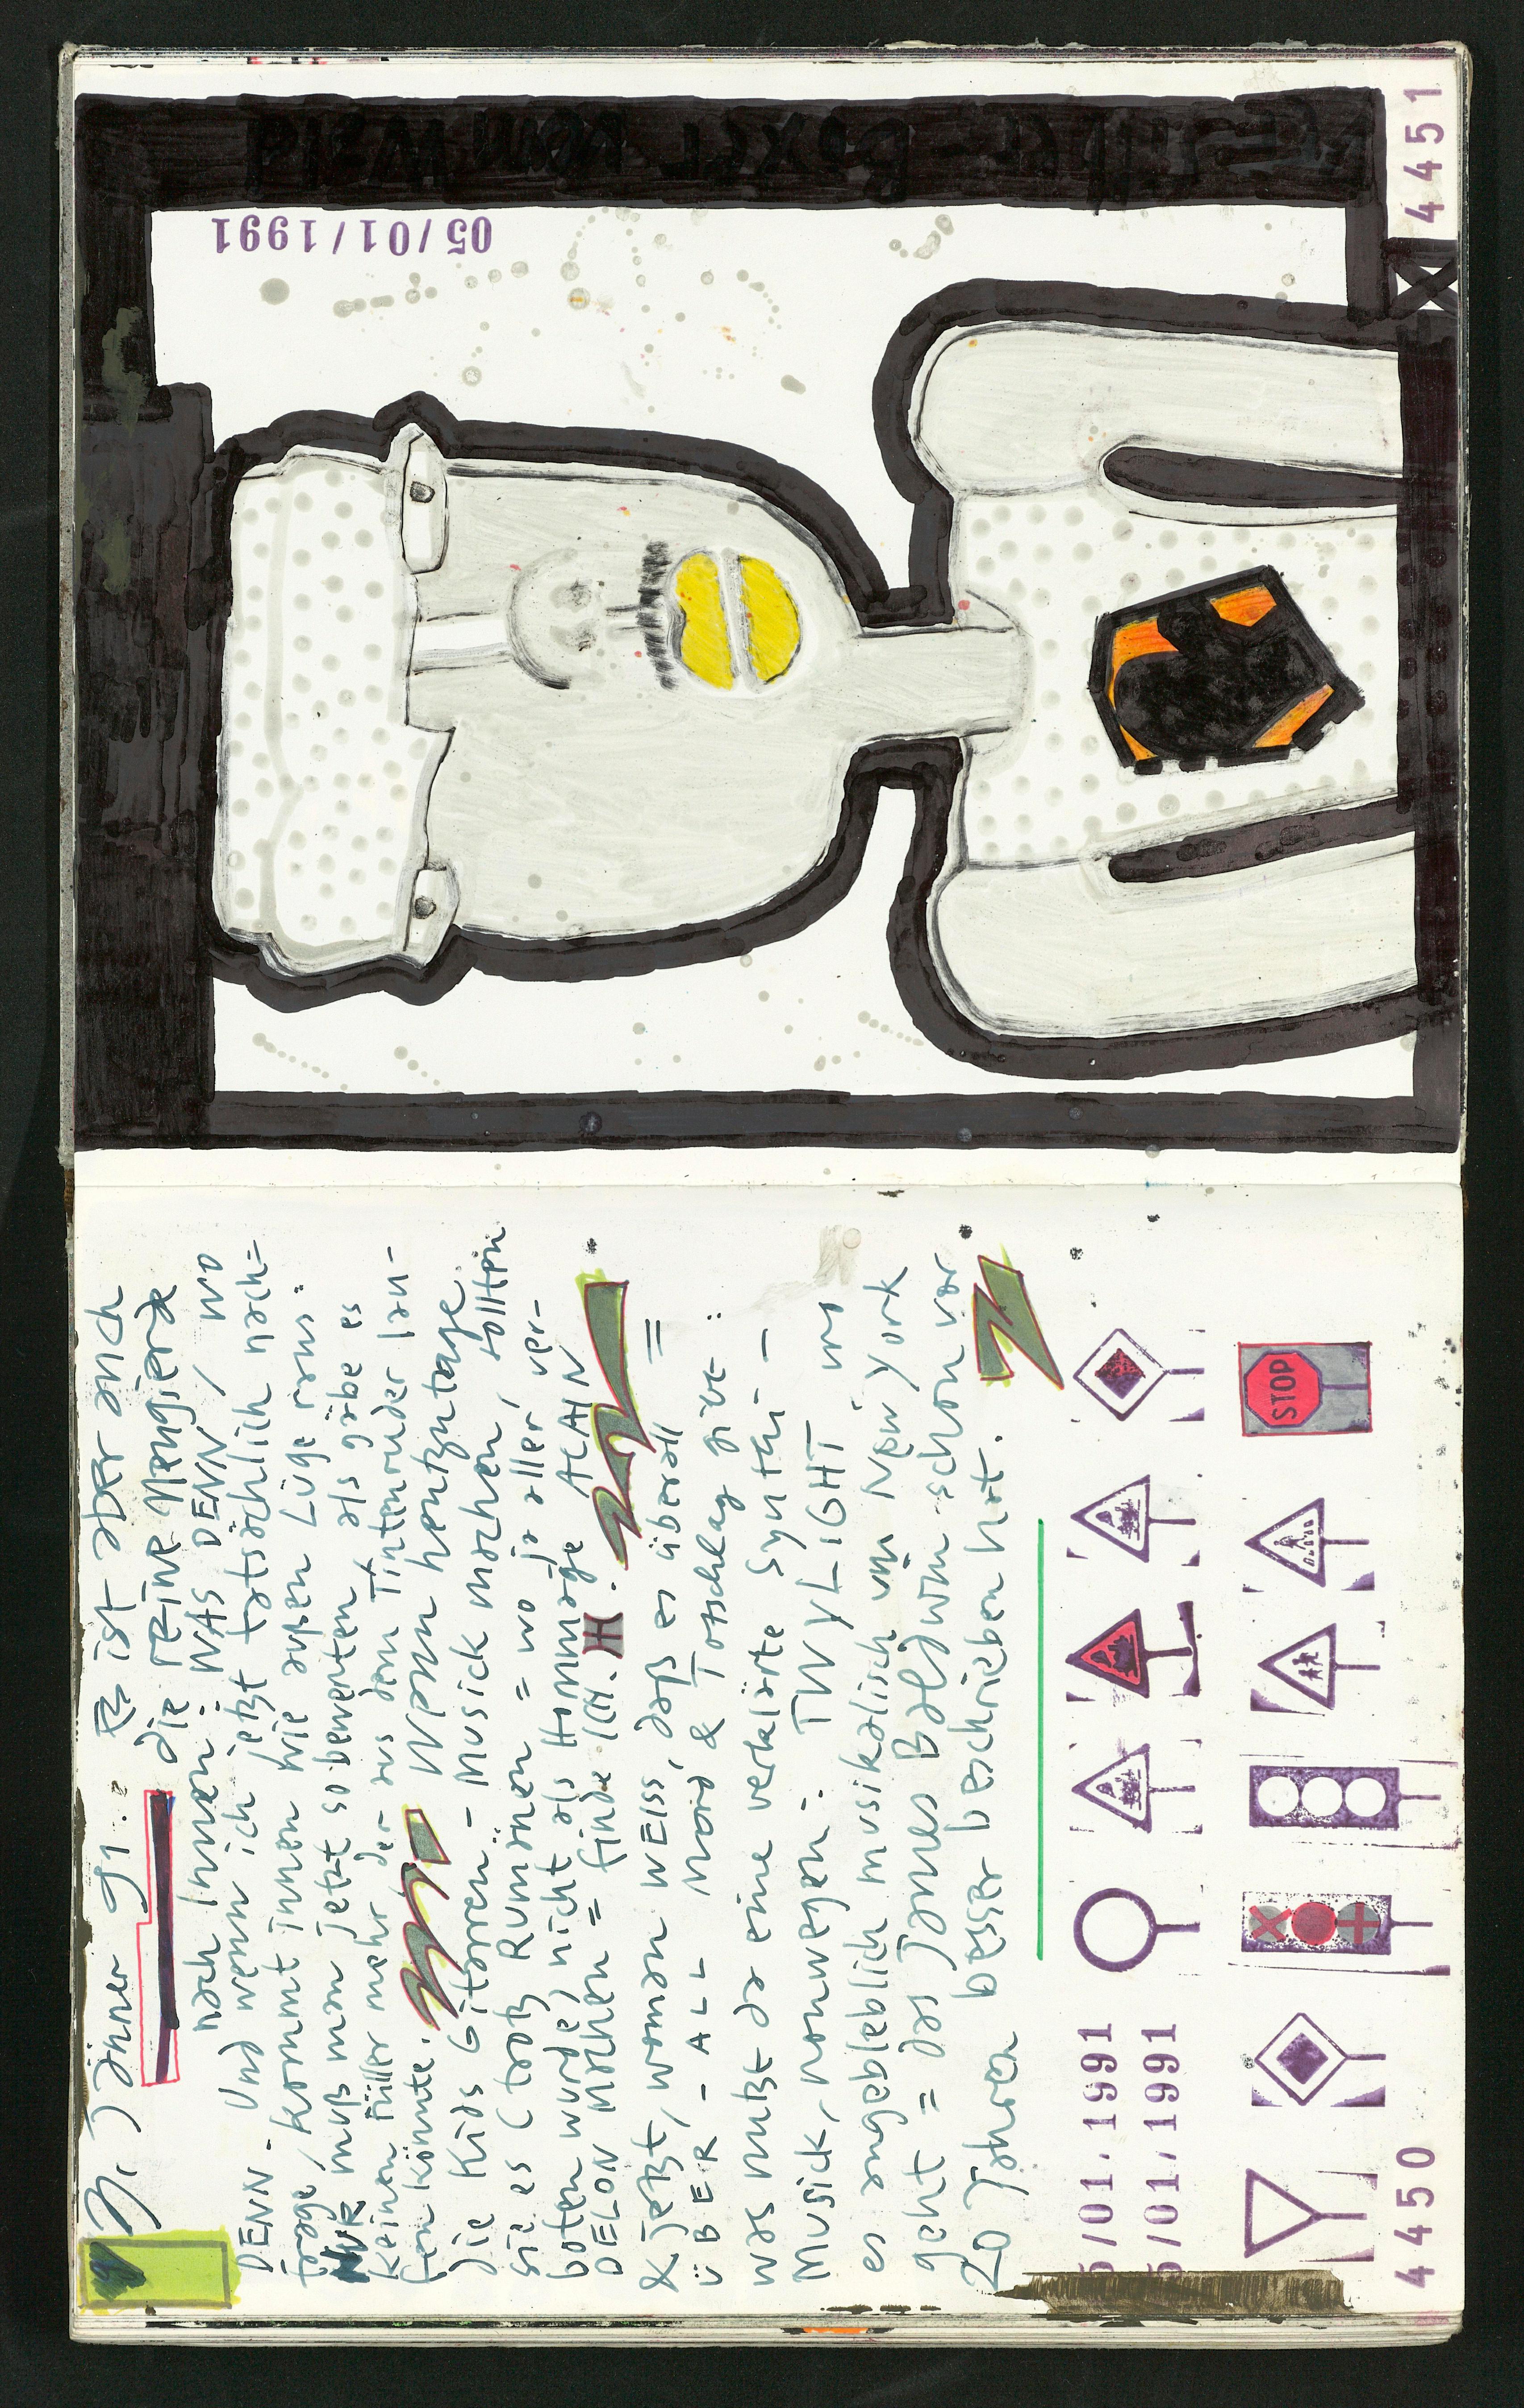 Jänner 91 : Es ist aber auch
die reine Neugierde
nach innen: WAS DENN / WO
DENN - Und wenn ich jetzt tatsächlich nach=
frage, kommt innen wie außen Lüge raus.
NUR muß man jetzt so bewerten als gäbe es
keinen Füller mehr der aus dem Tintenruder lau-
fen könnte. Wenn heutzutage
die Kids Gitarren-Musick machen, sollten
sie es (trotz Rumänen = wo ja aller ver-
boten wurde) nicht als Hommage ALAIN
DELON machen = finde ICH.
& jetzt, woman WEISS, daß es überall =
ÜBER-ALL Mord & Totschlag gibt :
was nutzt da eine verklärte Synthi-
Musick, vonwegen: TWYLIGHT wo
es angeblich musikalisch um New York
geht = das James Baldwin schon vor
20 Jahren besser beschrieben hat.
5/01/1991
5/01/1991
STOP
4450
05/01/1991
Boxer vom Wald
4451